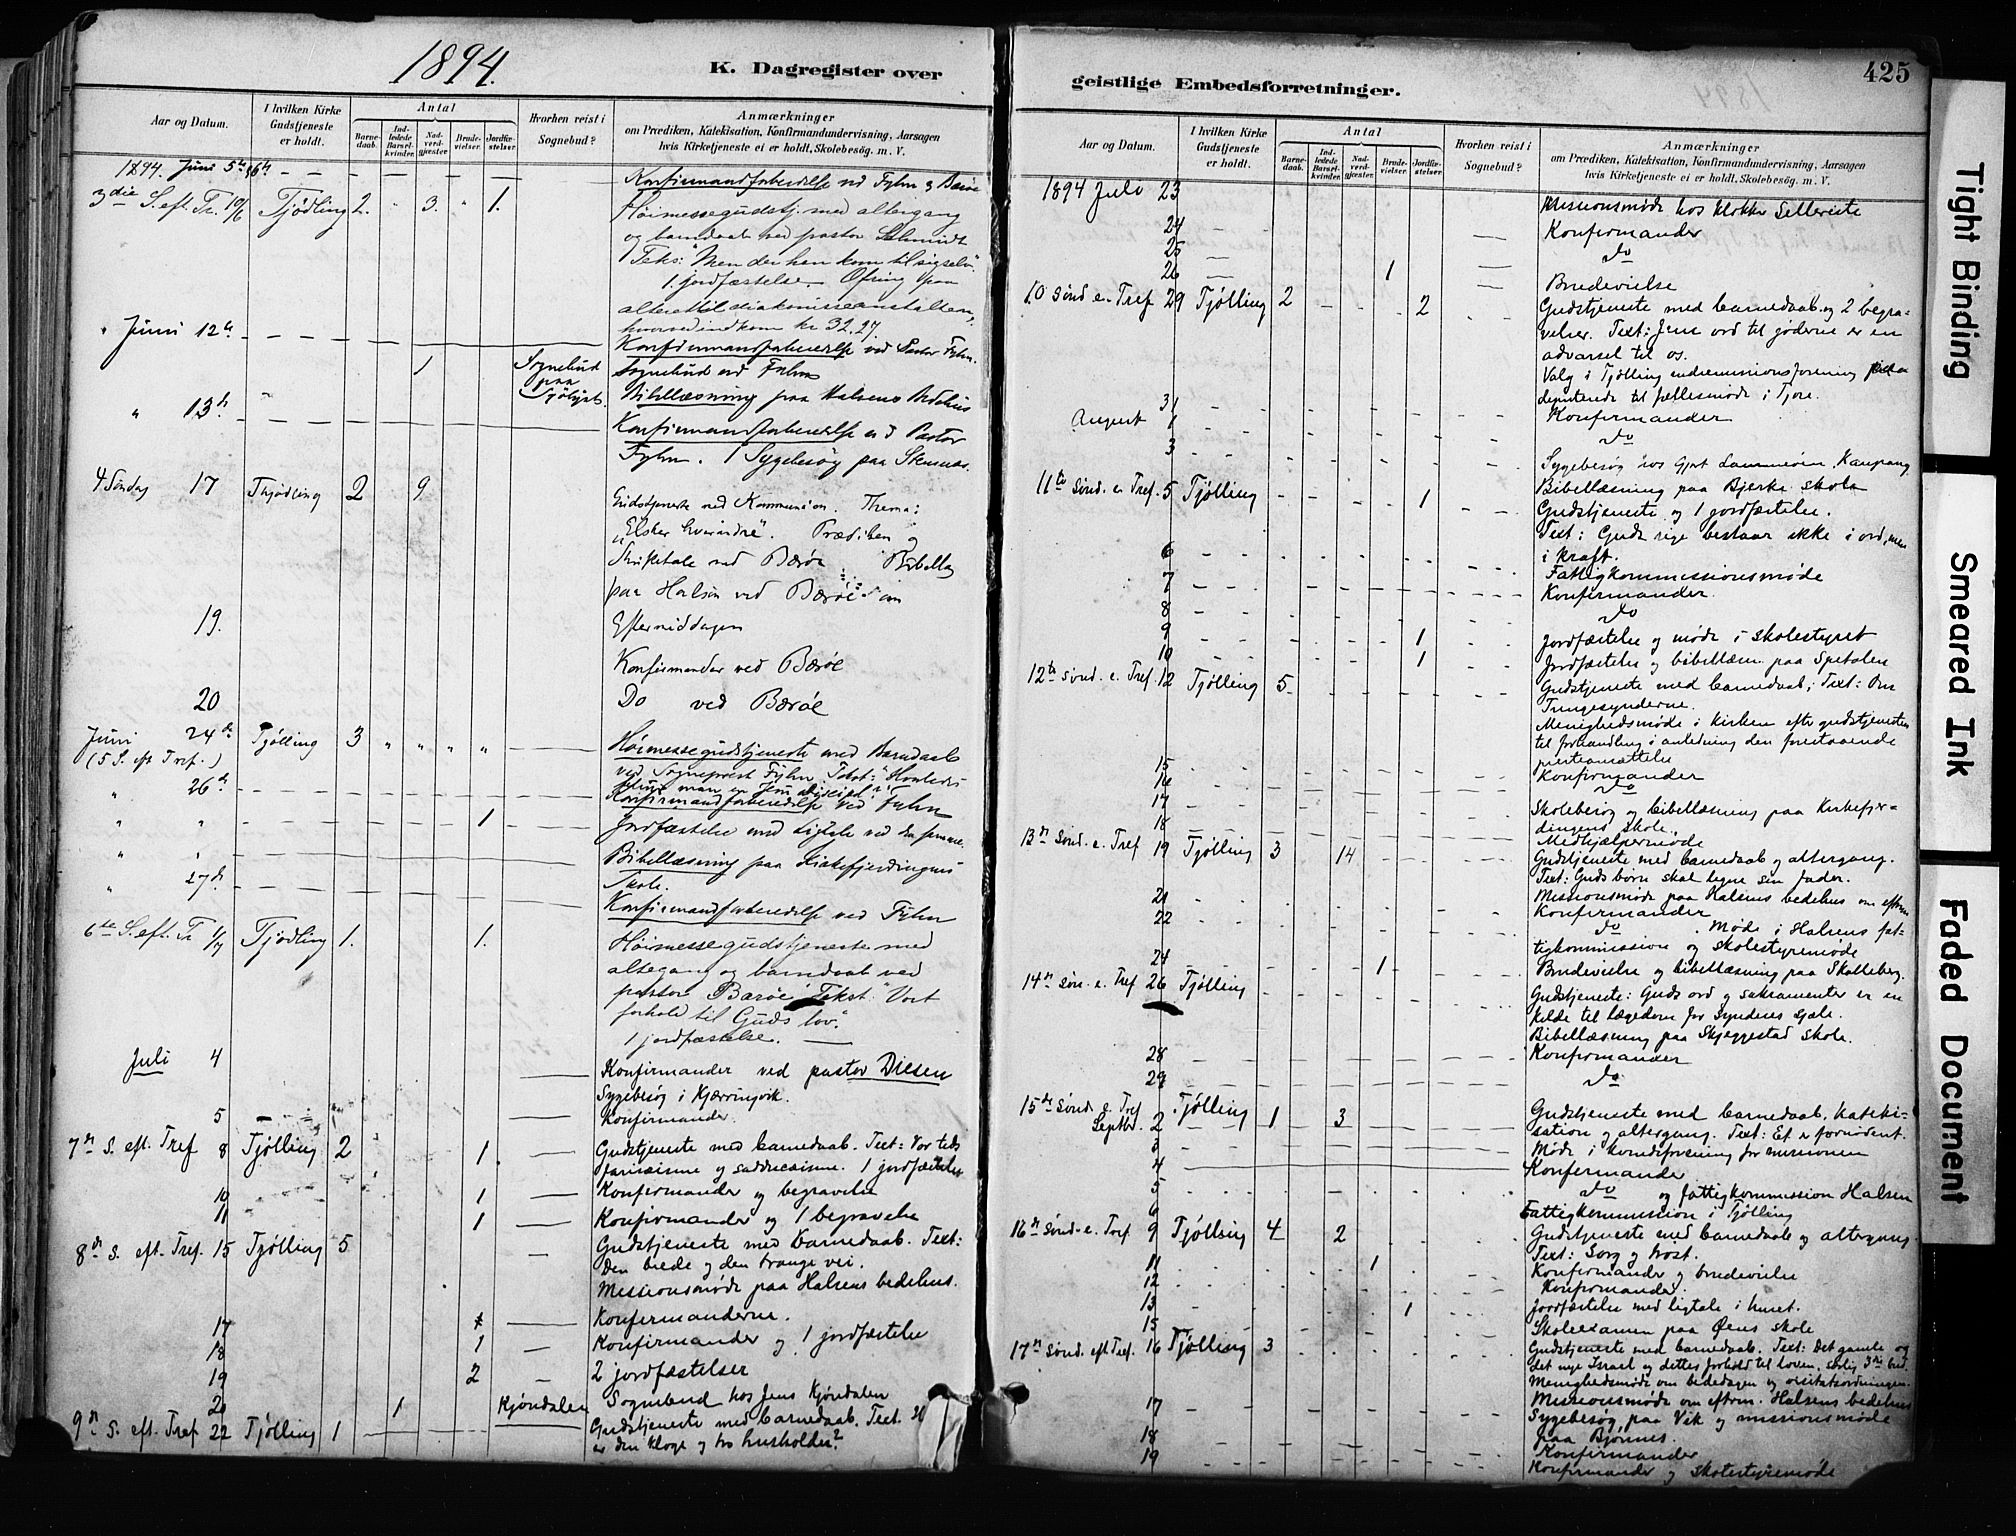 1894.
K. Dagregister over
Aar og Datum.
I hvilken Kirke Gudstjeneste er holdt.
Antal
Barne-daab.
Ind-ledede Barsel-kvinder.
Nad-verd-gjæster
Brude-vielser.
Jordfæ-stelser.
Hvorhen reist i Sognebud?
Anmærkninger
om Prædiken, Katekisation, Konfirmandundervisning, Aarsagen
hvis Kirketjeneste ei er holdt, Skolebesøg. m. V.
1894. Juni 5te & 6te Konfirmandforberedelse ved Fyhn & Bærøe
3die S. eft. Tr. 10/6 Tjödling 2. " 3. " 1. Høimessegudstj. med altergang
og barnedaab ved pastor Schmidt
Tekst: "Men der han kom til sig selv".
1 jordfæstelse. Ofring paa
alteret til diakonisseanstalten,
hvorved indkom kr 32.27.
" Juni 12te Konfirmandforberedelse ved Pastor Fyhn.
1 Sognebud paa Sognebud ved Fyhn
Bibellæsning paa Halsens Bedehus
" 13de Konfirmandforberedelse ved Pastor
Fyhn. 1 Sygebesøg paa
4 Søndag 17 Thjødling 2 9 Gudstjeneste med Kommunion. Thema:
"Elsker hverandre". Prædiken og
Skriftetale ved Bærøe. Bibellæs
paa Halsen ved Bærøe om
Eftermiddagen
19. Konfirmander ved Bærøe
20 Do ved Bærøe
Juni 24de Tjølling 3 " " " " Høimessegudstjeneste med Barnedaab
(5 S. eft Tref.) ved Sogneprest Fyhn. Tekst: "Hvorledes
bliver man en Jesu discipel".
" 26de Konfirmandforberedelse ved Fyhn
" " 1 Jordfæstelse med Ligtale ved den samme.
" " Bibellæsning paa Kirkefjerdingens
Skole.
" 27de Konfirmandforberedelse ved Fyhn
6te S. eft. Tr 1/7 Tjödling 1. 1. Høimessegudstjeneste med
altergang og barnedaab ved
pastor Bærøe Tekst: "Vort
forhold til Guds lov".
1 jordfæstelse.
Juli 4 Konfirmander ved pastor Dilsen
Sygebesøg i Kjærringvik.
5 Konfirmander.
7de S. eft. Tref 8 Tjølling 2 1. Gudstjeneste med barnedaab. Text: Vor tids
farisæisme og sadducæisme. 1 jordfæstelse
10 1 Konfirmander og begravelse
11 1 Konfirmander og 1 begravelse
8de S. eft. Tref. 15 Tjølling 5 Gudstjeneste med barnedaab. Text:
Den brede og den trange vei.
Missionsmøde paa Halsens bedehus.
17 Konfirmanderne.
18 1 Konfirmander og 1 jordfæstelse
19 2 2 jordfæstelser
20 1 Kjøndalen Sognebud hos Jens Kjøndalen
9de S. eft. Tref 22 Tjølling 1 Gudstjeneste med barnedaab. Text:
er den kloge og tro husholder?
geistlige Embedsforretninger.
425
Aar og Datum.
I hvilken Kirke Gudstjeneste er holdt.
Antal
Barne-daab.
Ind-ledede Barsel-kvinder.
Nad-verd-gjæster
Brude-vielser.
Jordfæ-stelser.
Hvorhen reist i Sognebud?
Anmærkninger
om Prædiken, Katekisation, Konfirmandundervisning, Aarsagen
hvis Kirketjeneste ei er holdt, Skolebesøg. m. V.
1894 Juli 23 Missionsmøde hos klokker
24 Konfirmander
25 do
26 1 Brudevielse
10 Sønd e. Tref 29 Tjølling 2 2 Gudstjeneste med barnedaab og 2 begra-
velser. Text: Jesu ord til jøderne er en
advarsel til os.
Valg i Tjølling indremissionsforening paa
deputerede til fællesmøde i
31 Konfirmander
August 1 do
3 Sygebesøg hos Kaupang
Bibellæsning paa Bjerke skole
11te Sønd. e. Tref. 5 Tjølling 1 Gudstjeneste og 1 jordfæstelse.
Text: Guds rige bestaar ikke i ord, men
i kraft.
6 Fattigkommissionsmøde
7 Konfirmander.
8 do
9 1 Jordfæstelse og møde i skolestyret
10 1 Jordfæstelse og bibellæsn. paa
12te Sønd. e. Tref. 12 Tjølling 5 Gudstjeneste med barnedaab; Text: Om
Tungesynderne.
Menighedsmøde i kirken efter gudstjenesten
til forhandling i anledning den forestaaende
15 Konfirmander
16 do
17 Skolebesøg og bibellæsning paa Kirkefjer-
dingens skole.
18 Medhjælpermøde
13de Sønd. e. Tref 19 Tjølling 3 14 Gudstjeneste med barnedaab og altergang.
Text: Guds børn skal ligne sin fader.
Missionsmøde paa Halsens bedehus om efterm
21 Konfirmander
22 do. Møde i Halsens fat-
tigkommission og skolestyremøde
24 1 Brudevielse og bibellæsning paa Skalleberg.
14de Søn. e. Tref 26 Tjølling Gudstjeneste: Guds ord og sakramenter er en
kilde til lægedom for Syndens sjæle.
Bibellæsning paa Skjeggestad skole.
28 Konfirmander
29 do
15de Sønd. e. Tref Septbr. 2 Tjølling 1 3 Gudstjeneste med barnedaab, kateki-
sation og altergang. Text: Et er fornødent.
3 Møde i kvindeforening for missionen
4 Konfirmander
5 do og fattigkommission Halsen
6 Fattigkommission i Tjølling
16de Sønd. e. Tref. 9 Tjølling 4 2 Gudstjeneste med barnedaab og altergang.
Text: Sorg og trøst.
11 1 Konfirmander og brudevielse
12 Konfirmander.
13 1 Jordfæstelse med ligtale i huset.
15 Skoleexamen paa Øens skole
17de Sønd. eft. Tref. 16 Tjølling 3 Gudstjeneste med barnedaab. Text: Det gamle og
det nye Israel og dettes forhold til loven, særlig 3die bud.
Menighedsmøde om bededagen og visitatsordningen.
Missionsmøde om efterm. Halsens bedehus
17 Sygebesøg paa Vik og missionsmøde
paa Bjønnes.
18 Konfirmander
19 Konfirmander og skolestyremøde
Tight Binding
Smeared Ink
Faded Document